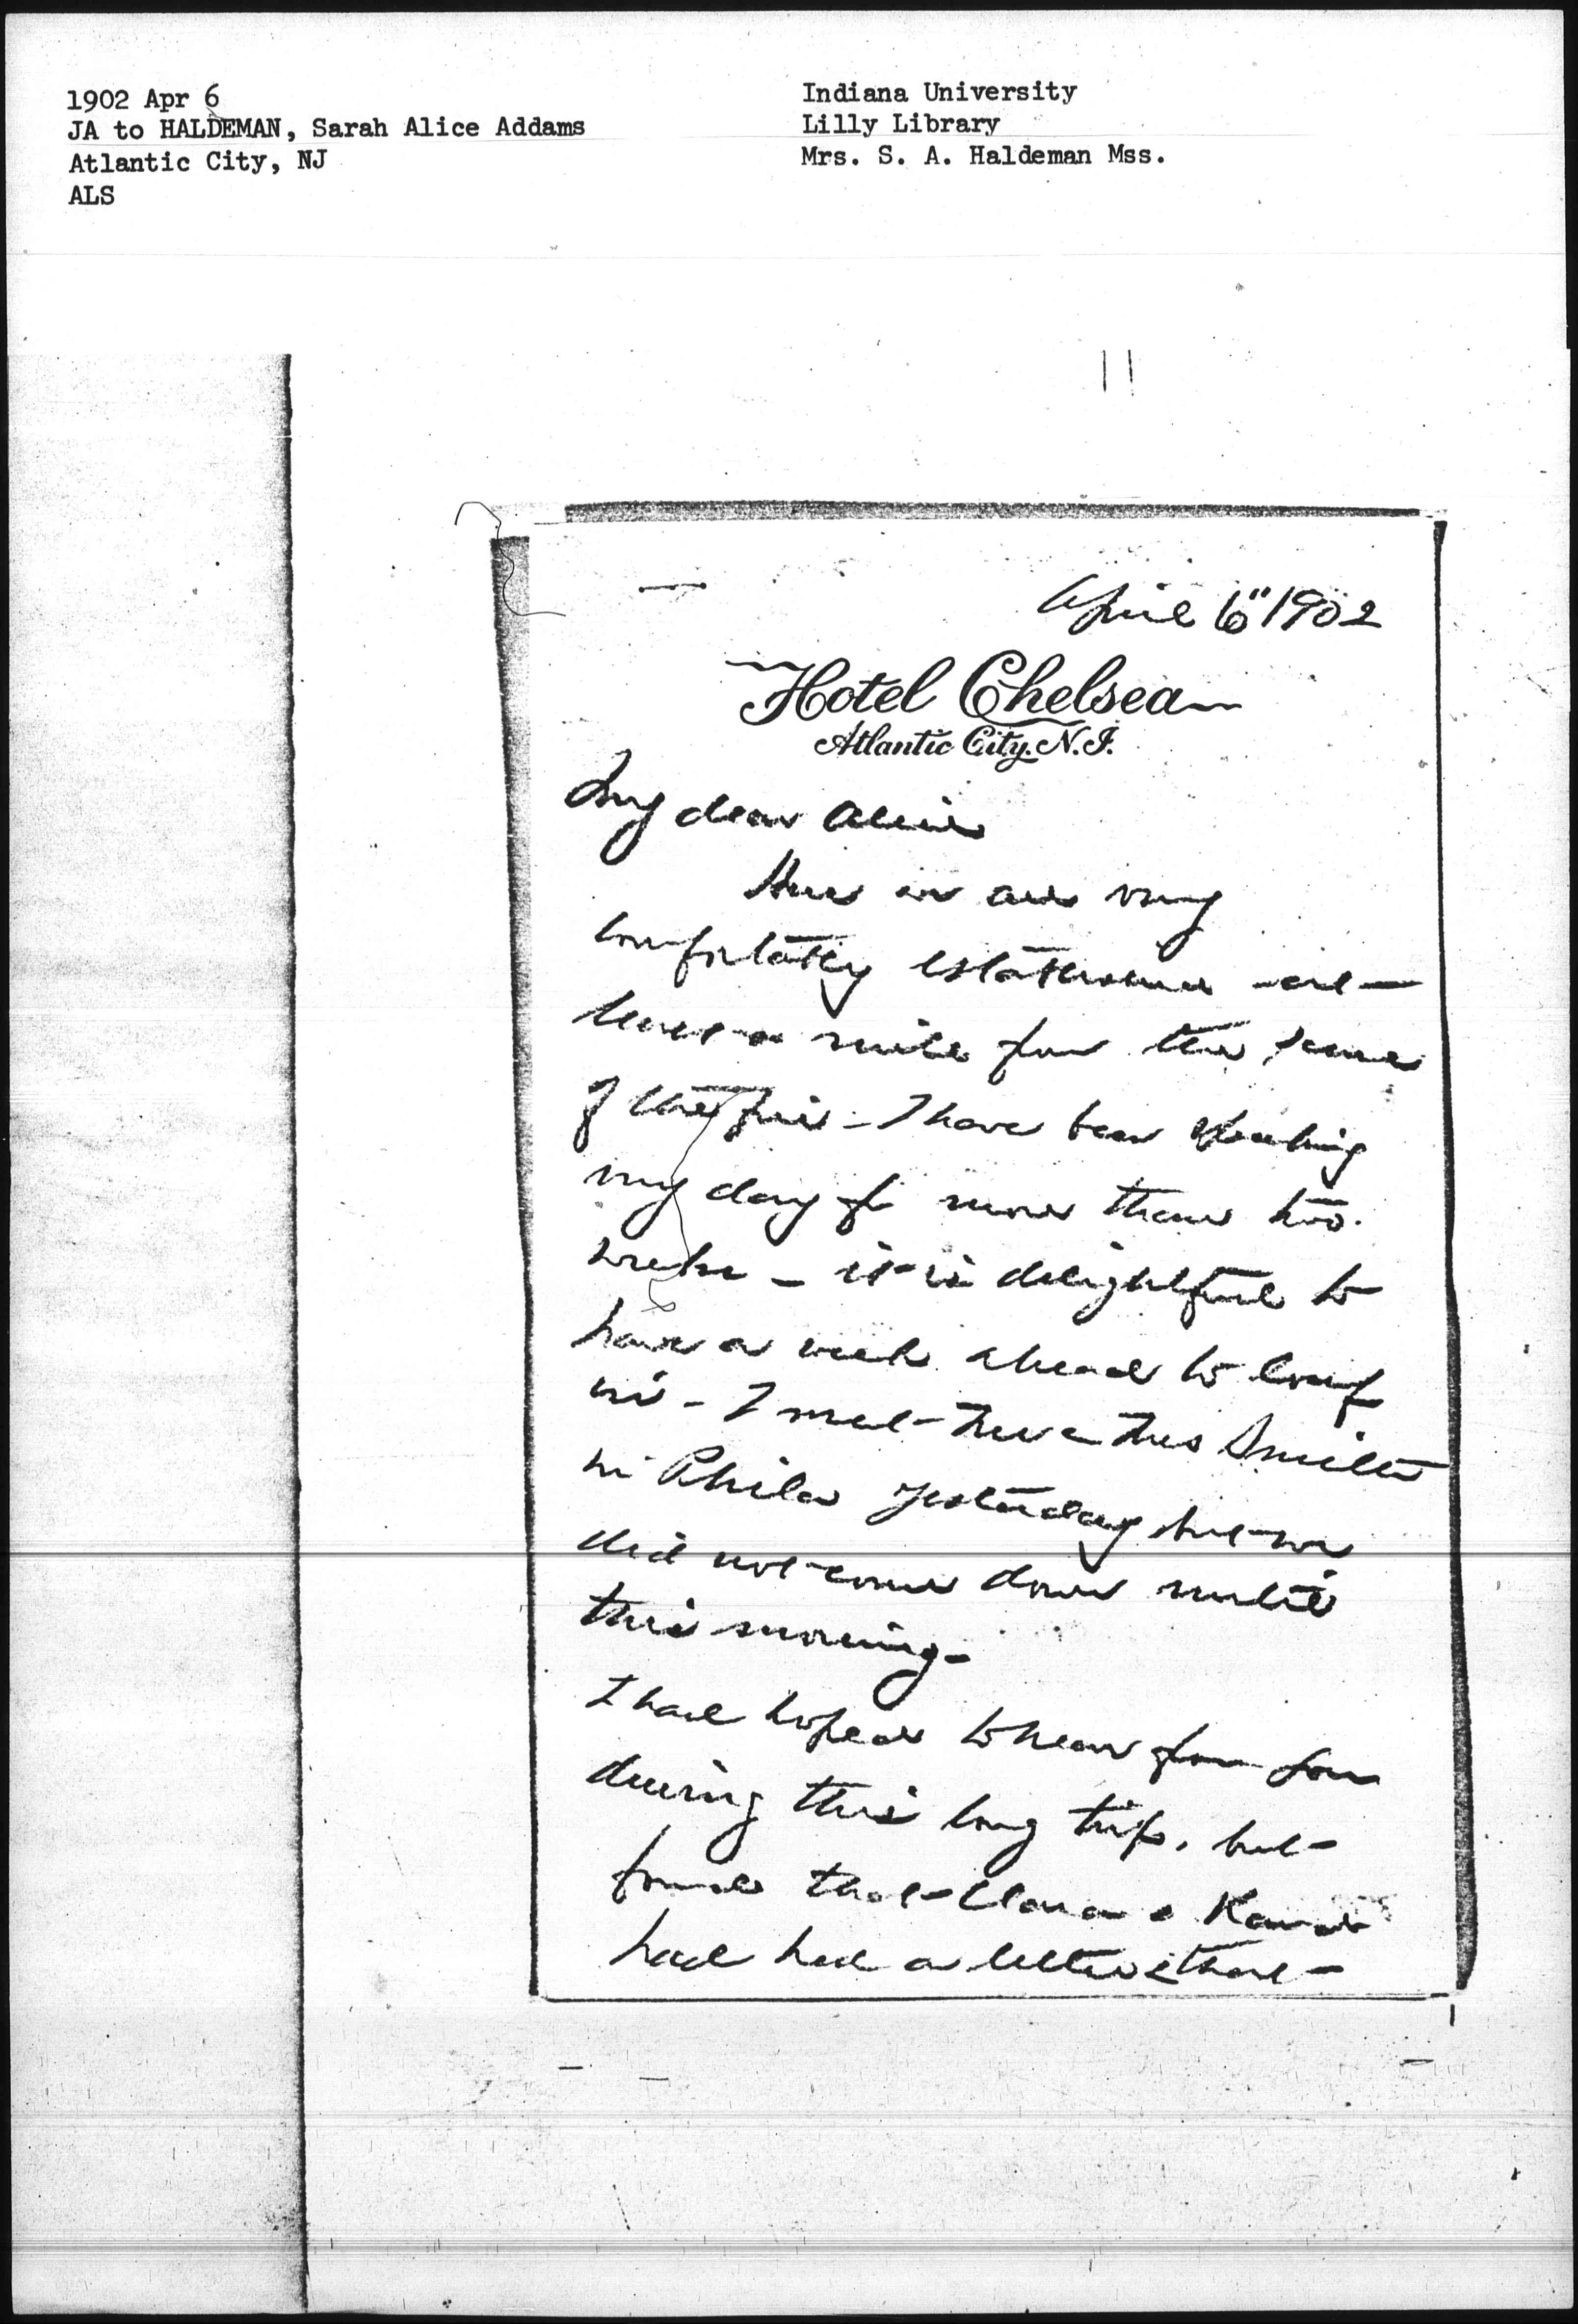 1902 Apr 6
JA to HALDEMAN, Sarah Alice Addams
Atlantic City, NJ
ALS
Indiana University
Lilly Library
Mrs. S. A. Haldeman Mss.
April 6" 1902
Hotel Chelsea
Atlantic City. N.J.
My dear Alice
Here we are very
comfortably established at
least a mile from the scene
of the fire - I have been speaking
my day for more than two
weeks - it is delightful to
have a week ahead to loaf
in - I met the Smiths
in Phila yesterday but we
did not come down until
this morning -
I had hoped to hear from you
during this long trip, but
found that Clara &
had had a letter & that